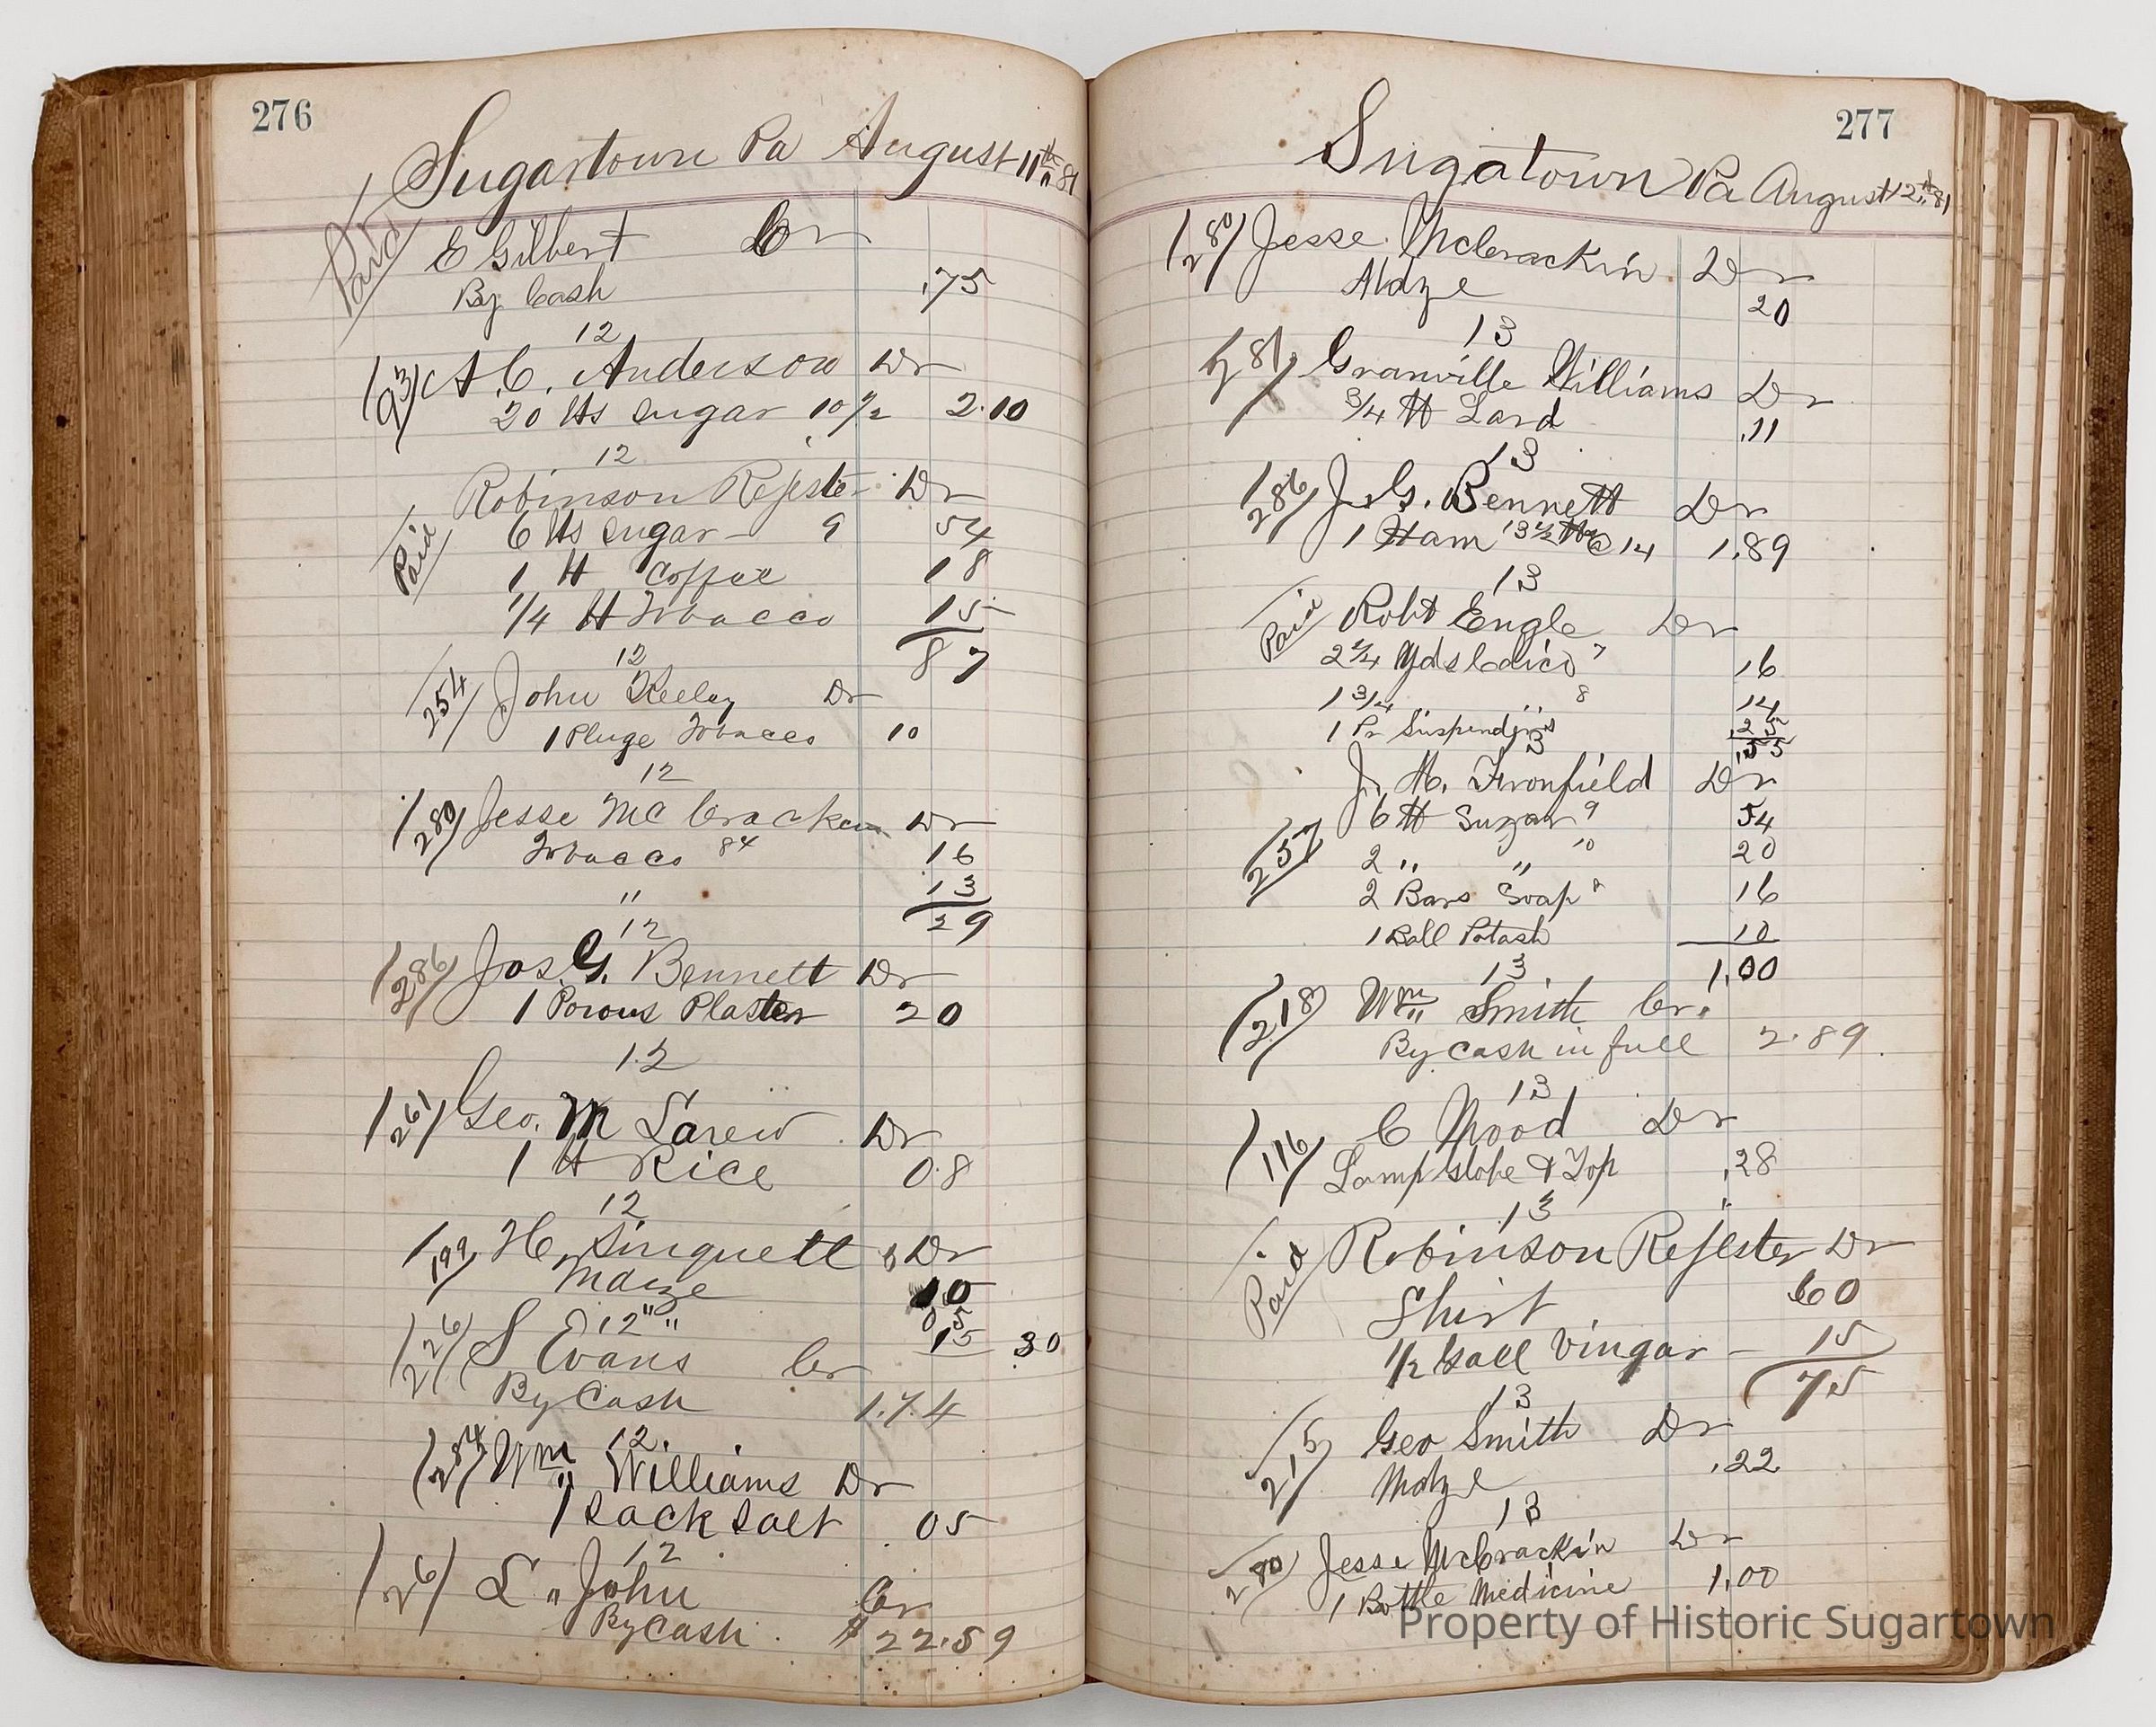 276
Sugartown Pa August 11th 81
Paid
E Gilbert Cr
By Cash .75
12
93 A. C. Anderson Dr
20 lbs sugar 10 1/2 2.10
12
Robinson Rejester Dr
Paid
6 lbs sugar 9 54
1 lb Coffee 18
1/4 lb Tobacco 15
87
12
254 John Keeley Dr
1 Pluge Tobacco 10
12
280 Jesse Mc Cracken Dr
Tobacco 84 16
" 13
29
12
286 Jos. G. Bennett Dr
1 Porous Plaster 20
12
261 Geo. M Dr
1 lb Rice 08
12
199 H. Singuett Dr
Maize 10
05
15 30
12
226 S Evans Cr
By Cash 1.74
12
284 Wm Williams Dr
1 sack salt 05
12
26 L " John Cr
By Cash $22.59
277
Sugatown Pa August 12th 81
280 Jesse McCrackin Dr
Mdze 20
13
281 Granville Williams Dr
3/4 lb Lard .11
13
286 J. G. Bennett Dr
1 Ham 13 1/2 lbs @ 14 1.89
13
Paid
Robt Engle Dr
2 1/4 Yds Calico 7 16
1 3/4 " " 8 14
1 Pr Suspenders 25
55
13
J. H. Fronfield Dr
257
6 lb Sugar 9 54
2 " " 10 20
2 Bars Soap 8 16
1 Ball Potash 10
1.00
13
218 Wm Smith Cr.
By Cash in full 2.89
13
116 C Mood Dr
Lamp Globe & Top .28
13
Paid
Robinson Rejester Dr
Shirt 60
1/2 Gall Vingar 15
75
13
215 Geo Smith Dr
Mdze .22
13
280 Jesse McCrackin Dr
1 Bottle Medicine 1.00
Property of Historic Sugartown